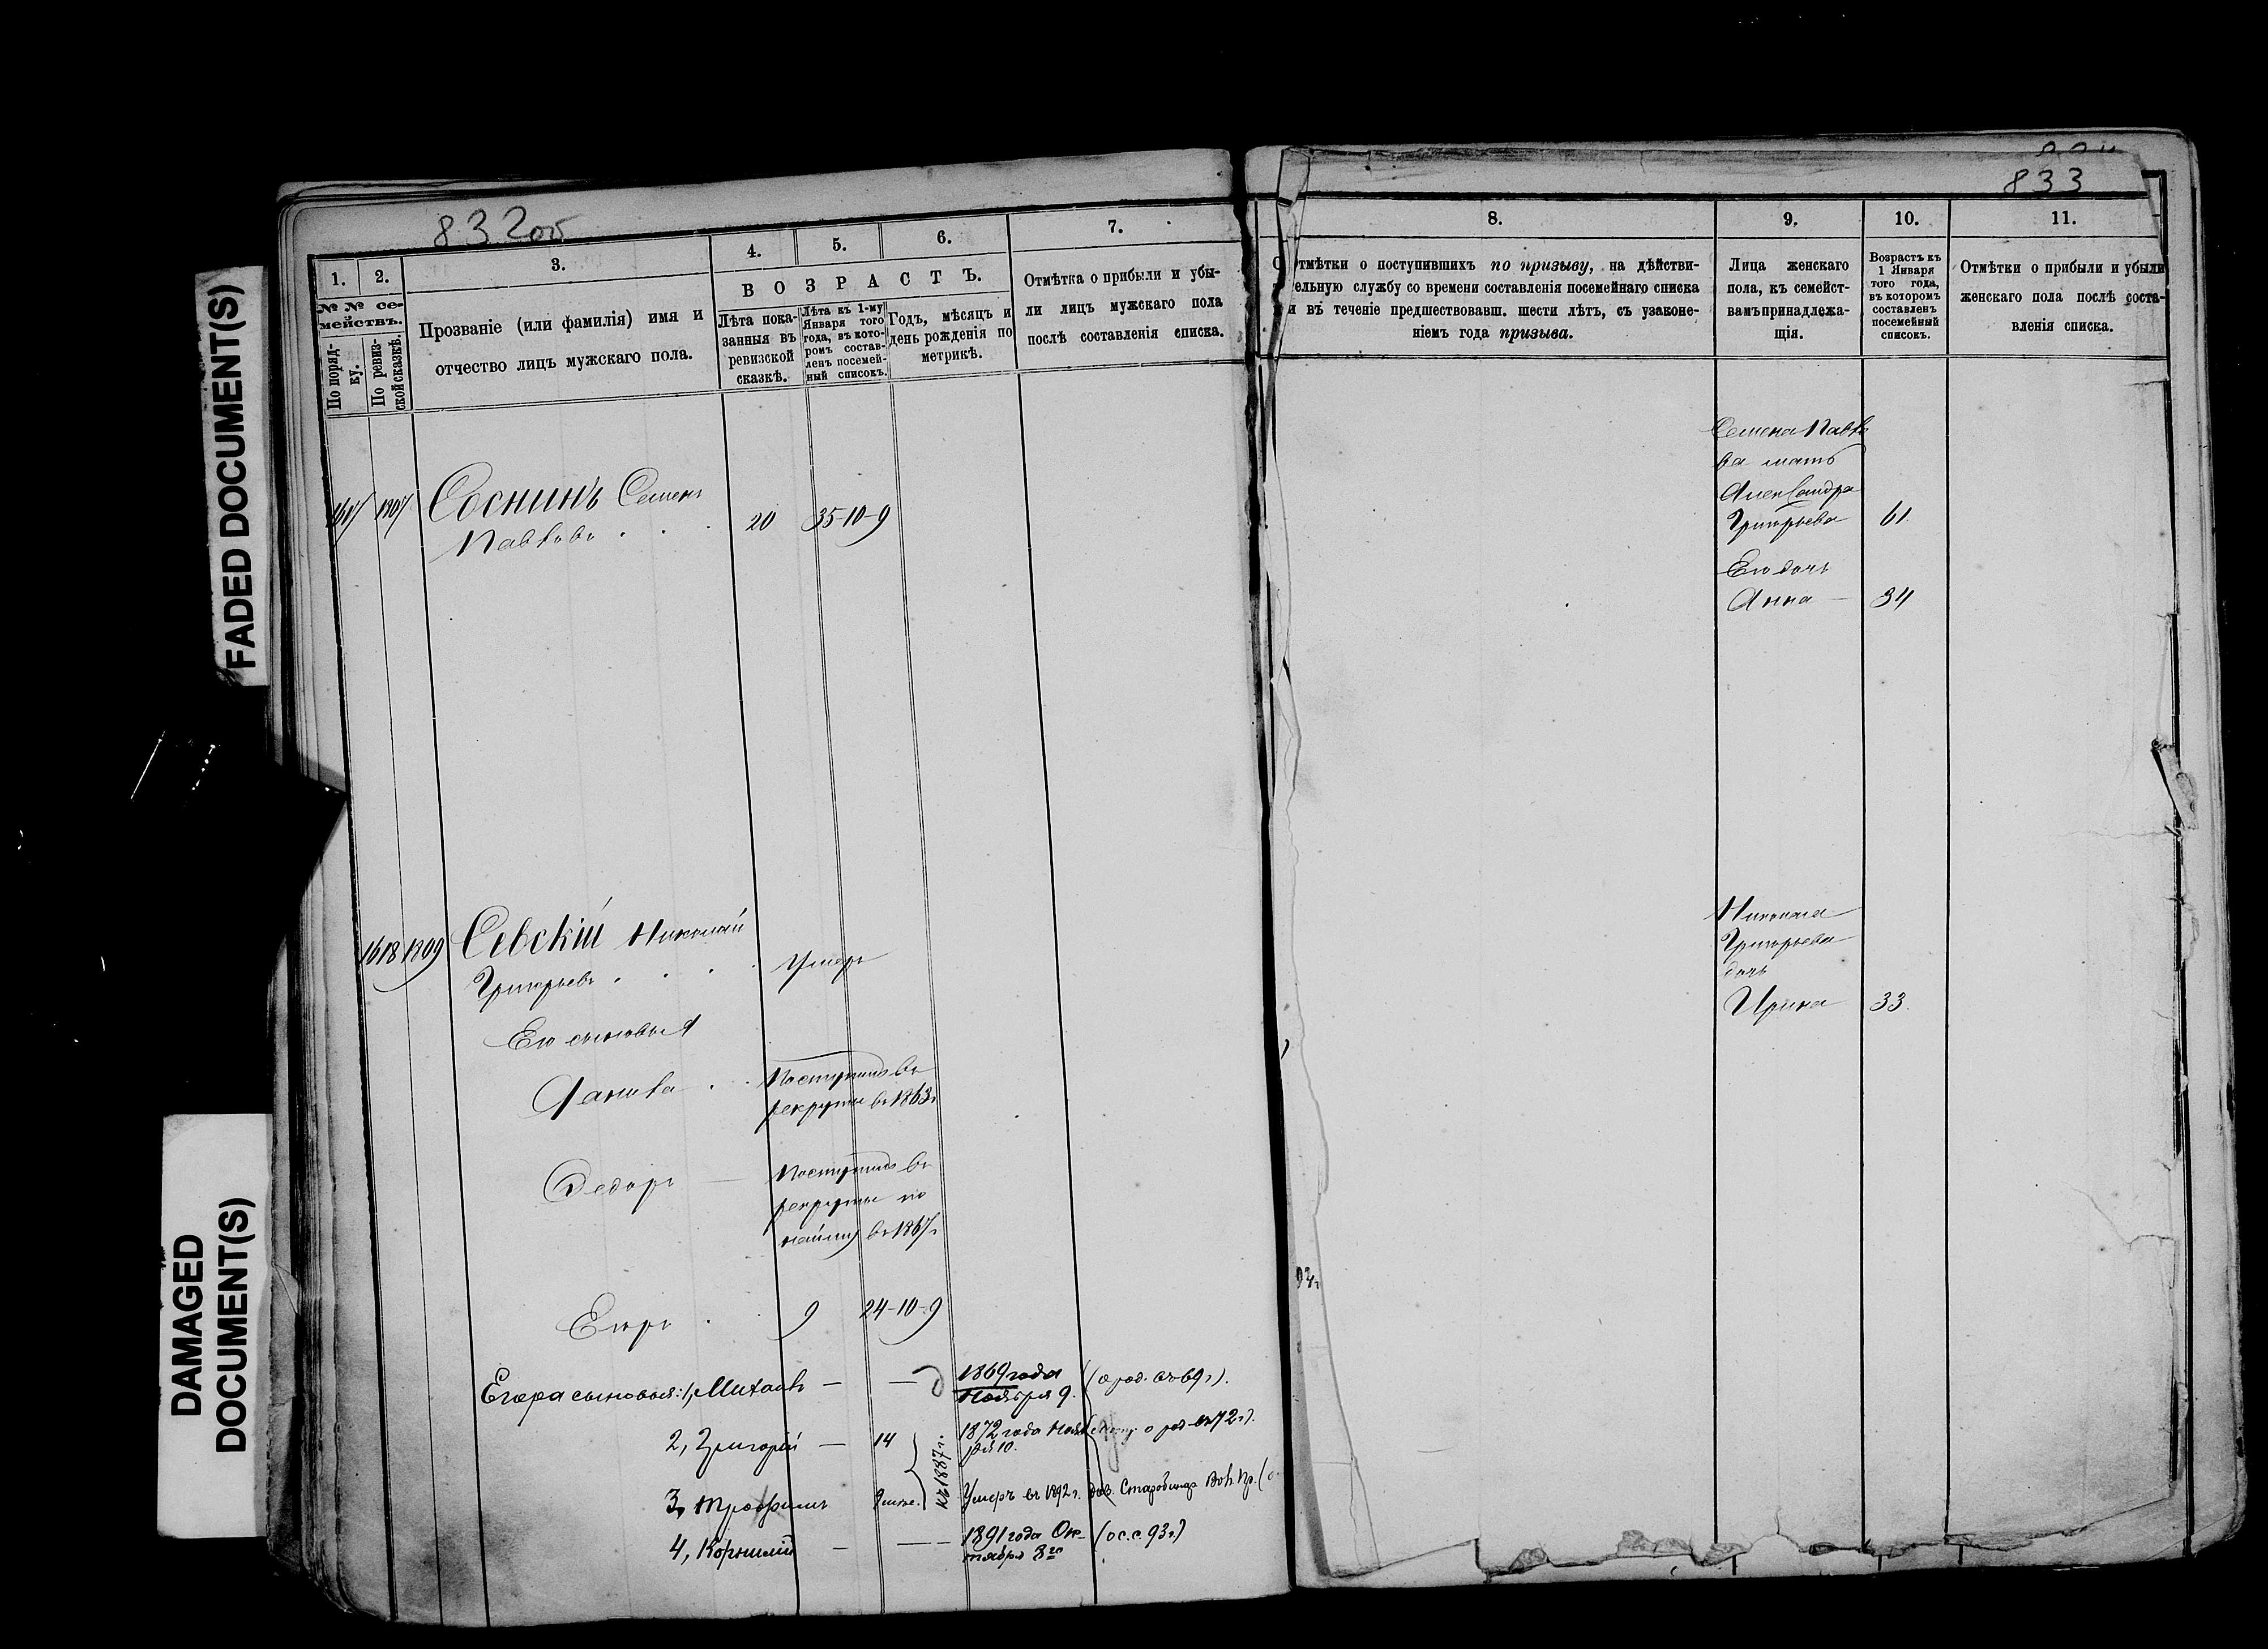 FADED DOCUMENT(S)
DAMAGED
DOCUMENT(S)
832об
1.
2.
3.
4.
5.
6.
7.
№ № се-
мействъ.
По поряд-
ку.
По ревиз-
ской сказкѣ.
Прозваніе (или фамилія) имя и
отчество лицъ мужскаго пола.
ВОЗРАСТЪ.
Лѣта пока-
занныя въ
ревизской
сказкѣ.
Лѣта къ 1-му
Января того
года, въ кото-
ромъ состав-
ленъ посемей-
ный списокъ.
Годъ, мѣсяцъ и
день рожденія по
метрикѣ.
Отмѣтка о прибыли и убы-
ли лицъ мужскаго пола
послѣ составленія списка.
Соснинъ Семенъ
Павловъ
20
35-10-9
1618
1809
Севскій Николай
Григорьевъ
Умеръ
Его сыновья
Данила
Поступилъ въ
рекруты въ 1863г
Федоръ
Поступилъ въ
рекруты по
найму въ 1867г
Егоръ
9
24-10-9
Егора сыновья: 1, Михаилъ
1869 года
Ноября 9.
(о род. въ 69г).
2, Григорій
14
къ 1887г.
1872 года Нояб
ря 10.
о род въ 72г).
3, Трофимъ
Умеръ въ 1892г. Старобинзр Вол. Пр.
4, Корнилій
1891 года Ок-
тября 8го
(о с. с. 93г.)
833
8.
9.
10.
11.
Отмѣтки о поступившихъ по призыву, на дѣйстви-
тельную службу со времени составленія посемейнаго списка
и въ теченіе предшествовавш. шести лѣтъ, съ узаконе-
ніемъ года призыва.
Лица женскаго
пола, къ семейст-
вамъ принадлежа-
щія.
Возрастъ къ
1 Января
того года,
въ которомъ
составленъ
посемейный
списокъ.
Отмѣтки о прибыли и убыли
женскаго пола послѣ соста-
вленія списка.
Семена Павло
ва мать
Александра
Григорьева
61.
Его дочь
Анна
34
Николая
Григорьева
дочь
Ирина
33.
93г